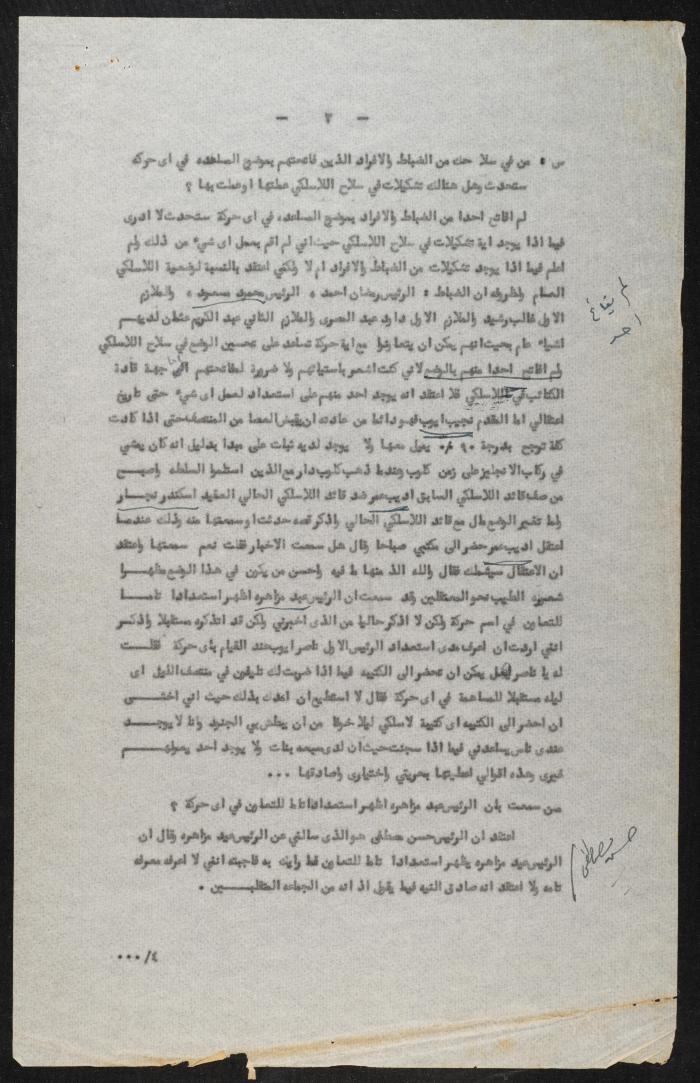 - ٣ -
س : من في سلاحك من الضباط والافراد الذين فاتحتهم بموضوع المساعده في اى حركه
ستحدث وهل هنالك تشكيلات في سلاح اللاسلكي عملتها او عملت بها ؟
لم افاتح احدا من الضباط والافراد بموضوع المساعده في اى حركة ستحدث لا ادرى
فيما اذا يوجد اية تشكيلات في سلاح اللاسلكي حيث اني لم اقم بعمل اى شيء من ذلك ولم
اعلم فيما اذا يوجد تشكيلات من الضباط والافراد ام لا ولكني اعتقد بالنسبة لوضعية اللاسلكي
العام ولظروفه ان الضباط : الرئيس رضان احمد ، الرئيس محمود مسعود ، والملازم
الاول غالب رشيد والملازم الاول داود عبد المصرى والملازم الثاني عبد الكريم عثمان لديهم
اشياء عام بحيث انهم يمكن ان يتعاونوا مع اية حركة تساعد على تحسين الوضع في سلاح اللاسلكي
ولم افاتح احدا منهم بالوضع لاني كنت اشعر باستيائهم ولا ضرورة لمفاتحتهم اما جهة قادة
الكتائب في اللاسلكي فلا اعتقد انه يوجد احد منهم على استعداد لعمل اى شيء حتى تاريخ
اعتقالي اما المقدم نجيب ايوب فهو دائما من عادته ان يقبض العصا من المنتصف حتى اذا كادت
كفة ترجح بدرجة ٩٠ ٪ يميل معها ولا يوجد لديه ثبات على مبدا بدليل انه كان يمشي
في ركاب الانجليز على زمن كلوب وعندما ذهب كلوب دار مع الذين استلموا السلطه واصبح
من صف قائد اللاسلكي السابق اديب عمر ضد قائد اللاسلكي الحالي العقيد اسكندر نجار
ولما تغير الوضع مال مع قائد اللاسلكي الحالي واذكر قصه حدثت او سمعتها منه وذلك عندما
اعتقل اديب عمر حضر الى مكتبي صباحا وقال هل سمعت الاخبار فقلت نعم سمعتها واعتقد
ان الاعتقال سيشملك فقال والله الذ منها ما فيه واحسن من يكون في هذا الوضع مظهرا
شعوره الطيب نحو المعتقلين وقد سمعت ان الرئيس عيد مزاهره اظهر استعدادا تاما
للتعاون في اسم حركة ولكن لا اذكر حاليا من الذى اخبرني ولكن قد اتذكره مستقبلا واذكر
انني اردت ان اعرف مدى استعداد الرئيس الاول ناصر ايوب عند القيام بأى حركة فقلت
له يا ناصر هل يمكن ان تحضر الى الكتيبه فيما اذا ضربت لك تليفون في منتصف الليل اى
ليله مستقبلا للمساهمة في اى حركة فقال لا استطيع ان اعدك بذلك حيث اني اخشى
ان احضر الى الكتيبه اى كتيبة لاسلكي ليلا خوفا من ان يبطش بي الجنود وانا لا يوجد
عندى ناس يساعدني فيما اذا سجنت حيث ان لدى سبعه بنات ولا يوجد احد يعولهم
غيرى وهذه اقوالي اعطيتها بحريتي واختيارى واصادقها ...
ممن سمعت بان الرئيس عيد مزاهره اظهر استعدادا تاما للتعاون في اى حركة ؟
اعتقد ان الرئيس حسن مصطفى هو الذى سالني عن الرئيس عيد مزاهره وقال ان
الرئيس عيد مزاهره يظهر استعدادا تاما للتعاون فما رايك به فاجبته انني لا اعرفه معرفه
تامه ولا اعتقد انه صادق النيه فيما يقول اذ انه من الجماعه المتقلبين .
٤/...
لم يفاتح
احد
حسن مصطفى